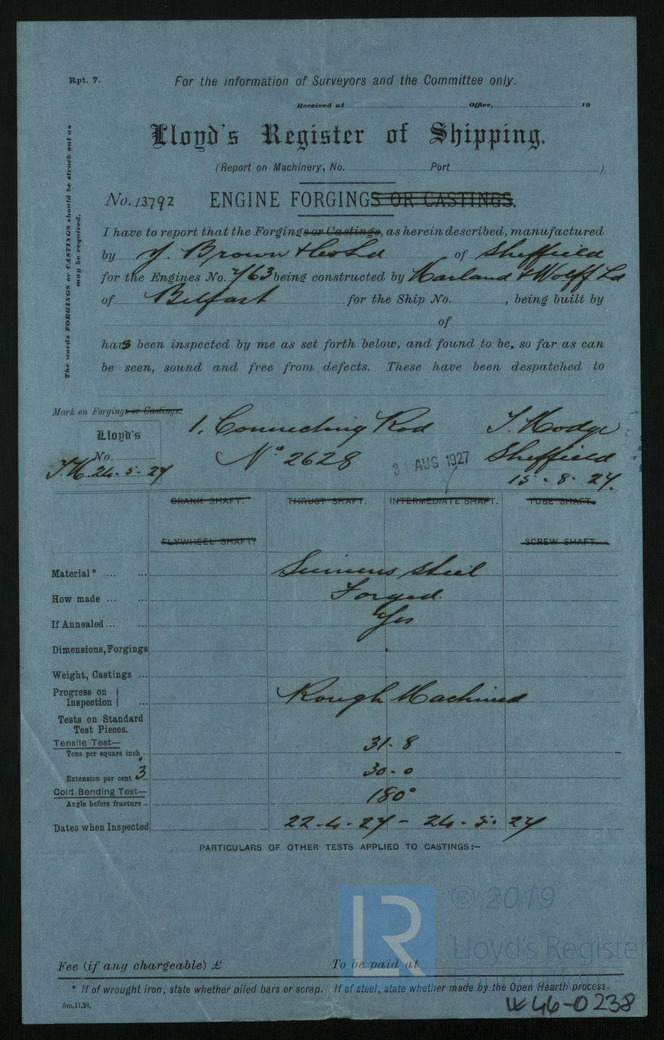 Rpt. 7.
For the information of Surveyors and the Committee only.
Received at Office, 19
Lloyd's Register of Shipping.
(Report on Machinery, No. Port )
No. 13792 ENGINE FORGINGS OR CASTINGS.
The words FORGINGS or CASTINGS should be struck out as may be required.
I have to report that the Forgings or Castings, as herein described, manufactured
by J. Brown & Co Ld of Sheffield
for the Engines No. 763 being constructed by Harland & Wolff Ld
of Belfast for the Ship No. , being built by
of
has been inspected by me as set forth below, and found to be, so far as can
be seen, sound and free from defects. These have been despatched to
Mark on Forgings or Castings:
Lloyd's
No.
J.H. 24-5-27
1. Connecting Rod J. Hodge
No 2628 Sheffield
31 AUG 1927 15-8-27.
CRANK SHAFT. THRUST SHAFT. INTERMEDIATE SHAFT. TUBE SHAFT.
FLYWHEEL SHAFT. SCREW SHAFT.
Material* ... ... Siemens Steel
How made ... ... Forged.
If Annealed ... ... Yes
Dimensions, Forgings
Weight, Castings ...
Progress on Inspection ... Rough Machined
Tests on Standard
Test Pieces.
Tensile Test—
Tons per square inch ... 31.8
Extension per cent 3" 30.0
Cold Bending Test— 180°
Angle before fracture ...
Dates when Inspected 22-4-27 - 24-5-27
PARTICULARS OF OTHER TESTS APPLIED TO CASTINGS:—
© 2019
LR
Lloyd's Register
Foundation
Fee (if any chargeable) £ To be paid at
* If of wrought iron, state whether piled bars or scrap. If of steel, state whether made by the Open Hearth process.
5m,11,26.
W46-0238